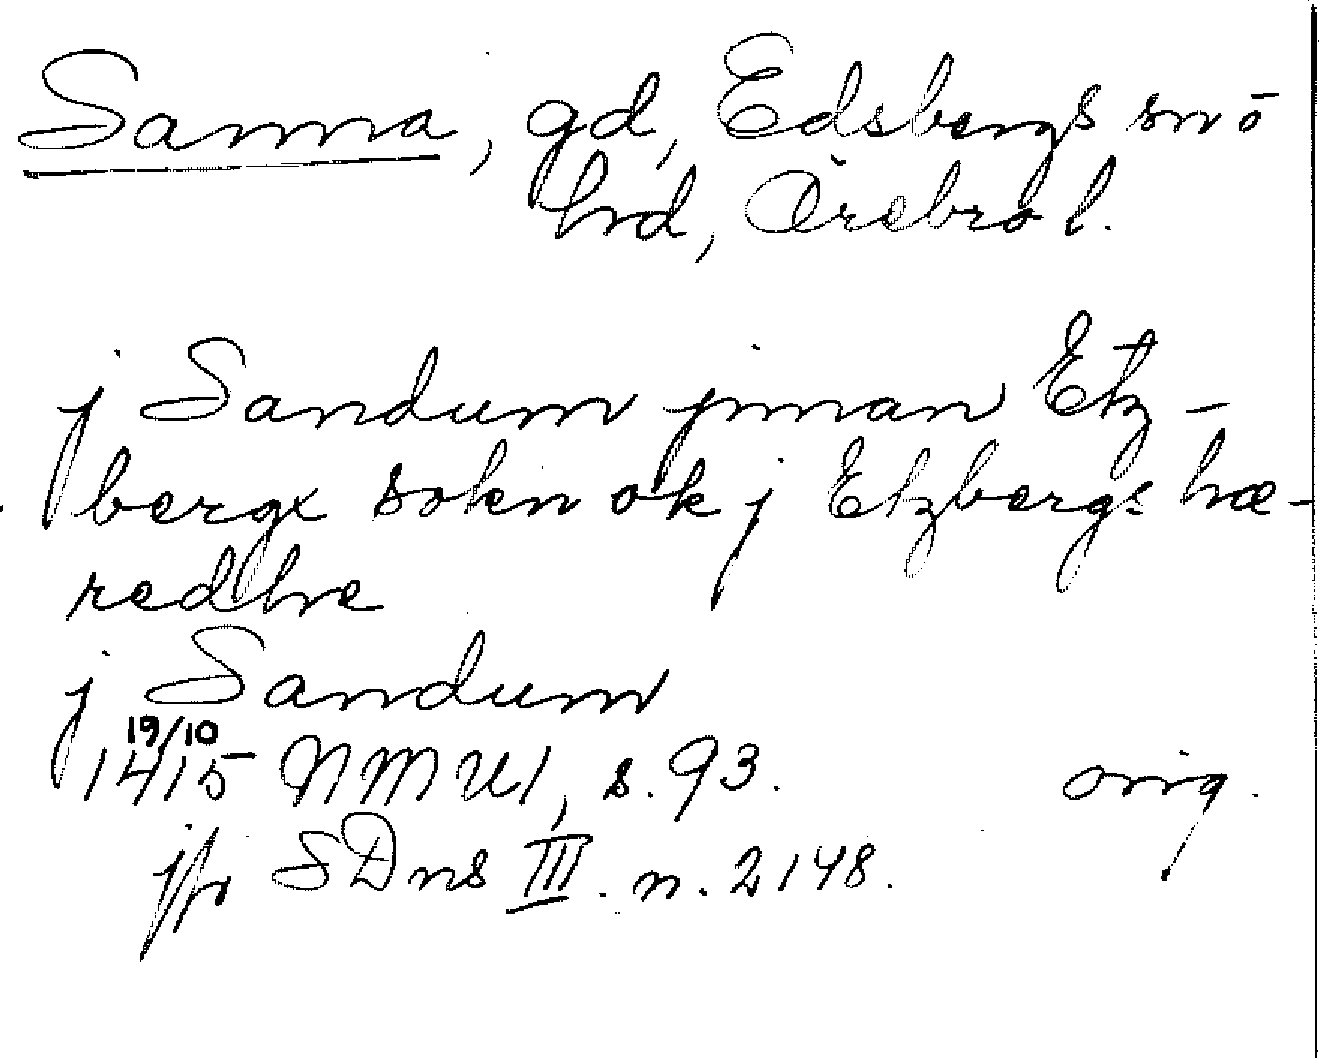 Sanna, gd, Edsbergs sn o
hd, Örebro l.
j Sandum jnnan Etz-
bergx sokn ok j Etzbergs hæ-
redhe
j Sandum
19/10
1415 NMU1, s. 93. orig.
jfr SDns III. n. 2148.